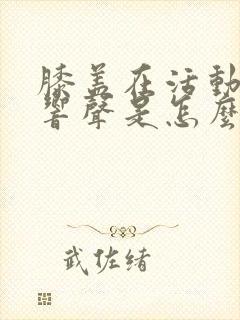 膝盖在活動
響聲是怎麼
武佐緒